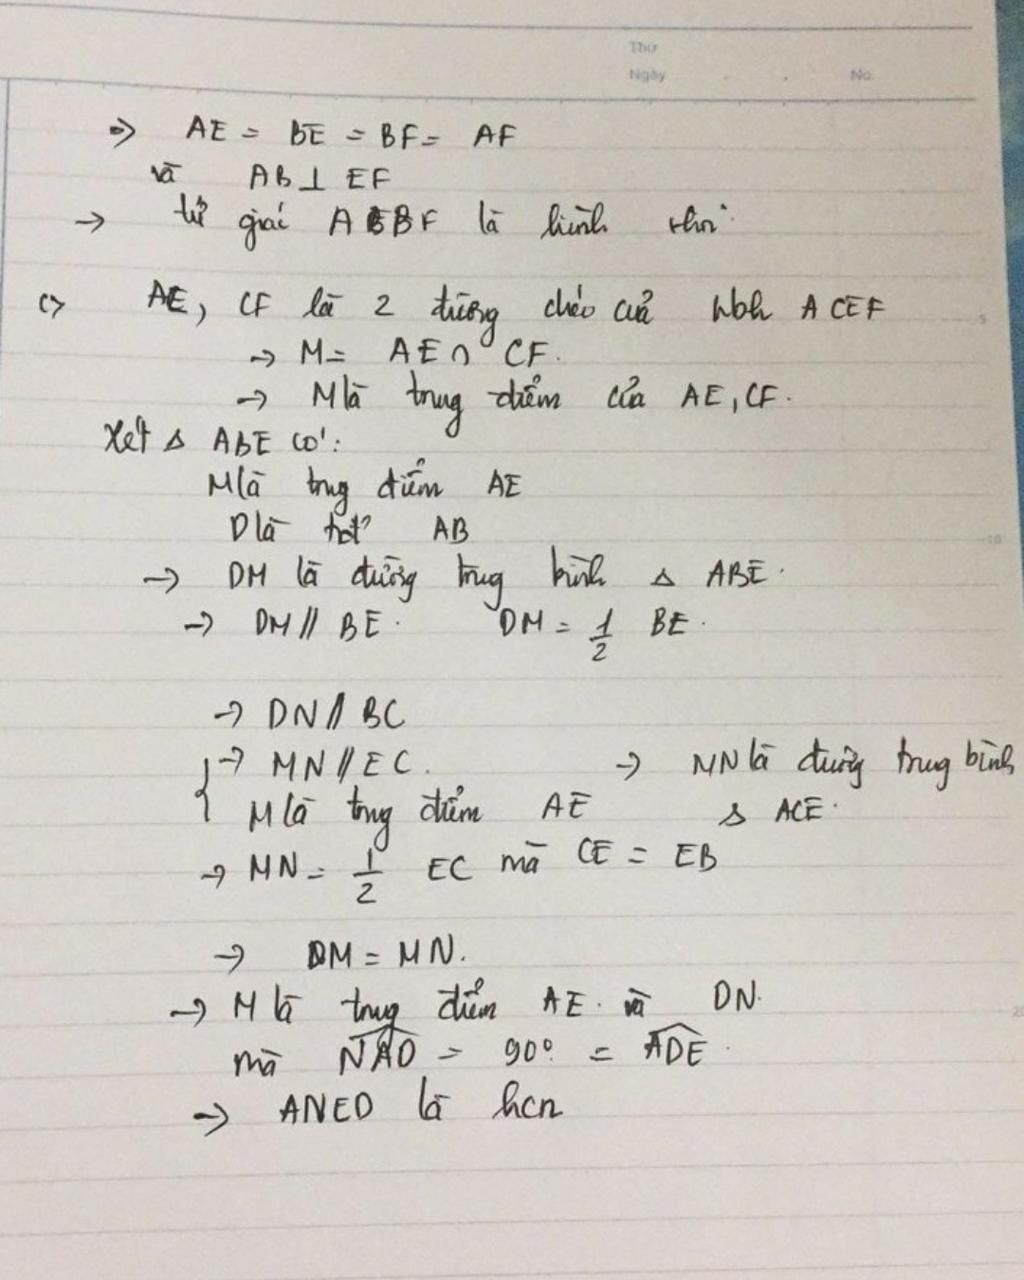 Thứ
Ngày No.
=> AE = BE = BF = AF
và AB ⊥ EF
→ tứ giác AEBF là hình thoi
c> AE, CF là 2 đường chéo của hbh ACEF
→ M = AE ∩ CF.
→ M là trung điểm của AE, CF.
Xét Δ ABE có:
M là trung điểm AE
D là AB
→ DM là đường trung bình Δ ABE.
→ DM // BE. DM = 1/2 BE.
→ DN // BC
{ → MN // EC. → MN là đường trung bình
M là trung điểm AE Δ ACE.
→ MN = 1/2 EC mà CE = EB
→ DM = MN.
→ M là trung điểm AE và DN.
mà NAD = 90° = ADE.
→ ANED là hcn
5
10